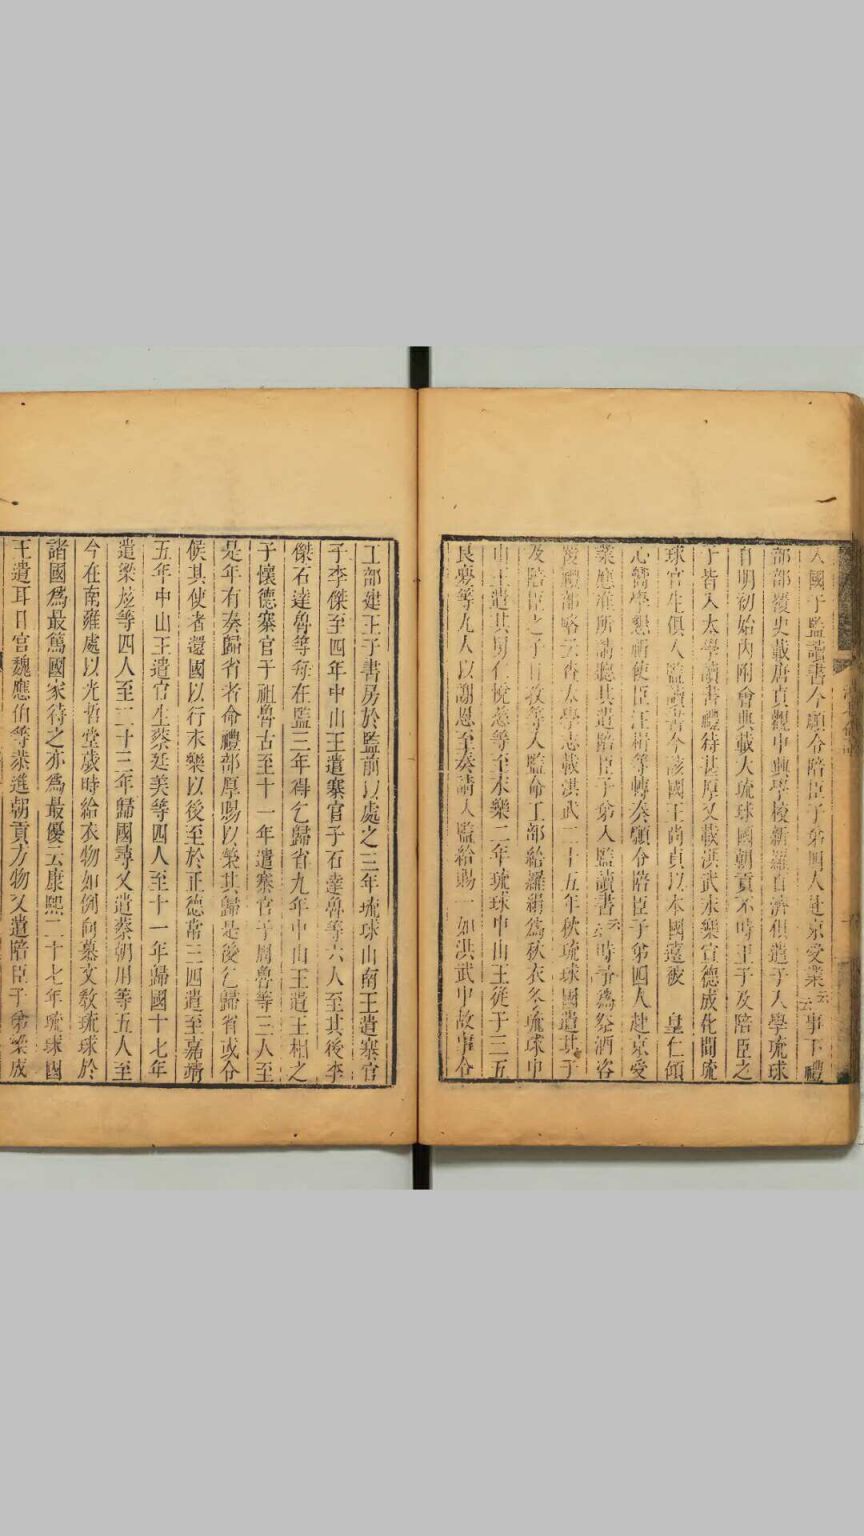 入國子監讀書今願令陪臣子弟四人赴京受業云云事下禮
部部覆史載唐貞觀中興學校新羅百濟俱遣子入學琉球
自明初始內附會典載大琉球國朝貢不時王子及陪臣之
子皆入太學讀書禮待甚厚又載洪武永樂宣德成化間琉
球官生俱入監讀書今該國王尚貞以本國遠被 皇仁傾
心嚮學懇祈使臣汪楫等轉奏願令陪臣子弟四人赴京受
業應准所請聽其遣陪臣子弟入監讀書云云時予為祭酒咨
覆禮部略云查太學志載洪武二十五年秋琉球國遣其子
及陪臣之子日孜等入監命工部給羅絹為秋衣冬琉球中
山王遣其舅仁悅慈等至永樂二年琉球中山王從子三五
良亹等九人以謝恩至奏請入監給賜一如洪武中故事令
工部建王子書房於監前以處之三年琉球山南王遣寨官
子李傑至四年中山王遣寨官子石達魯等六人至其後李
傑石達魯等每在監三年得乞歸省九年中山王遣王相之
子懷德寨官子祖魯古至十一年遣寨官子周魯等三人至
是年有奏歸省者命禮部厚賜以榮其歸是後乞歸省或令
候其使者還國以行永樂以後至於正德常三四遣至嘉靖
五年中山王遣官生蔡廷美等四人至十一年歸國十七年
遣梁炫等四人至二十三年歸國尋又遣蔡朝用等五人至
今在南雍處以光哲堂歲時給衣物如例向慕文教琉球於
諸國爲最篤國家待之亦爲最優云康熙二十七年琉球國
王遣耳目官魏應伯等恭進朝貢方物又遣陪臣子弟梁成